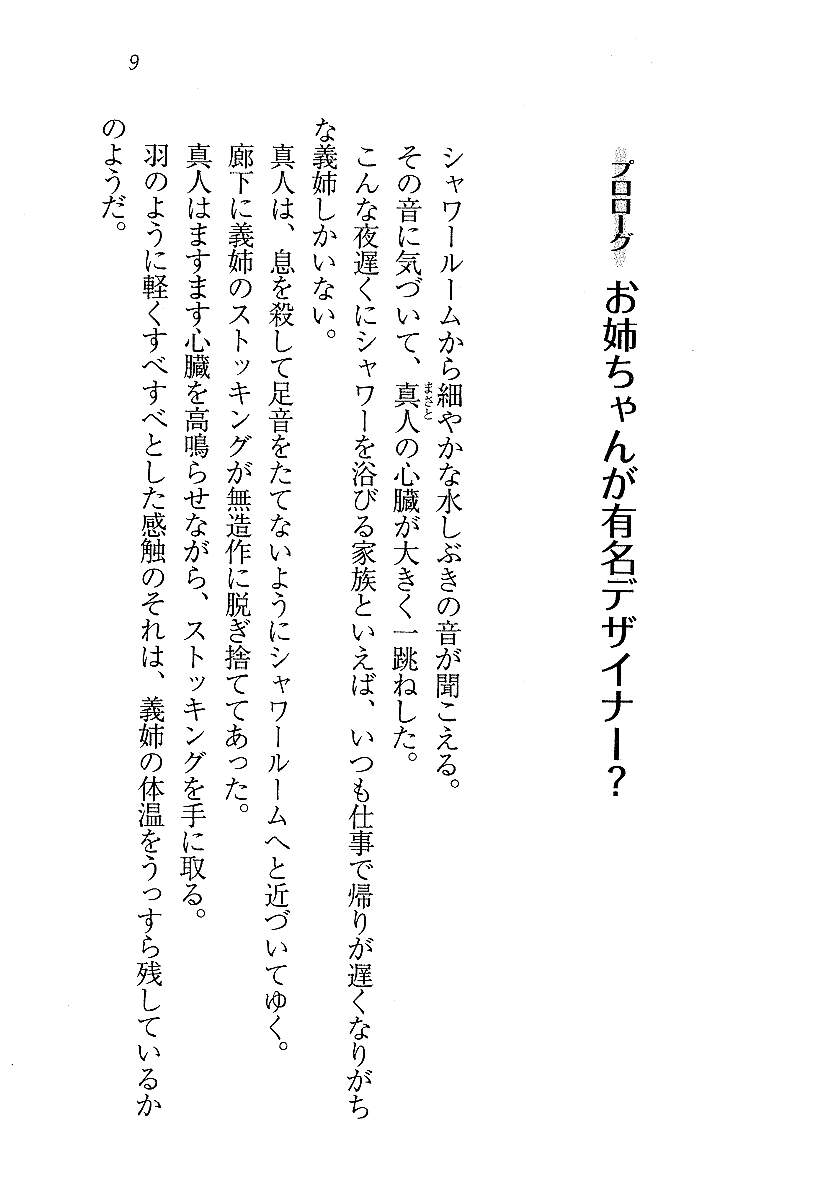 プロローグ お姉ちゃんが有名デザイナー？
シャワールームから細やかな水しぶきの音が聞こえる。
その音に気づいて、真人の心臓が大きく一跳ねした。
まさと
こんな夜遅くにシャワーを浴びる家族といえば、いつも仕事で帰りが遅くなりがち
な義姉しかいない。
真人は、息を殺して足音をたてないようにシャワールームへと近づいてゆく。
廊下に義姉のストッキングが無造作に脱ぎ捨ててあった。
真人はますます心臓を高鳴らせながら、ストッキングを手に取る。
羽のように軽くすべすべとした感触のそれは、義姉の体温をうっすら残しているか
のようだ。
9